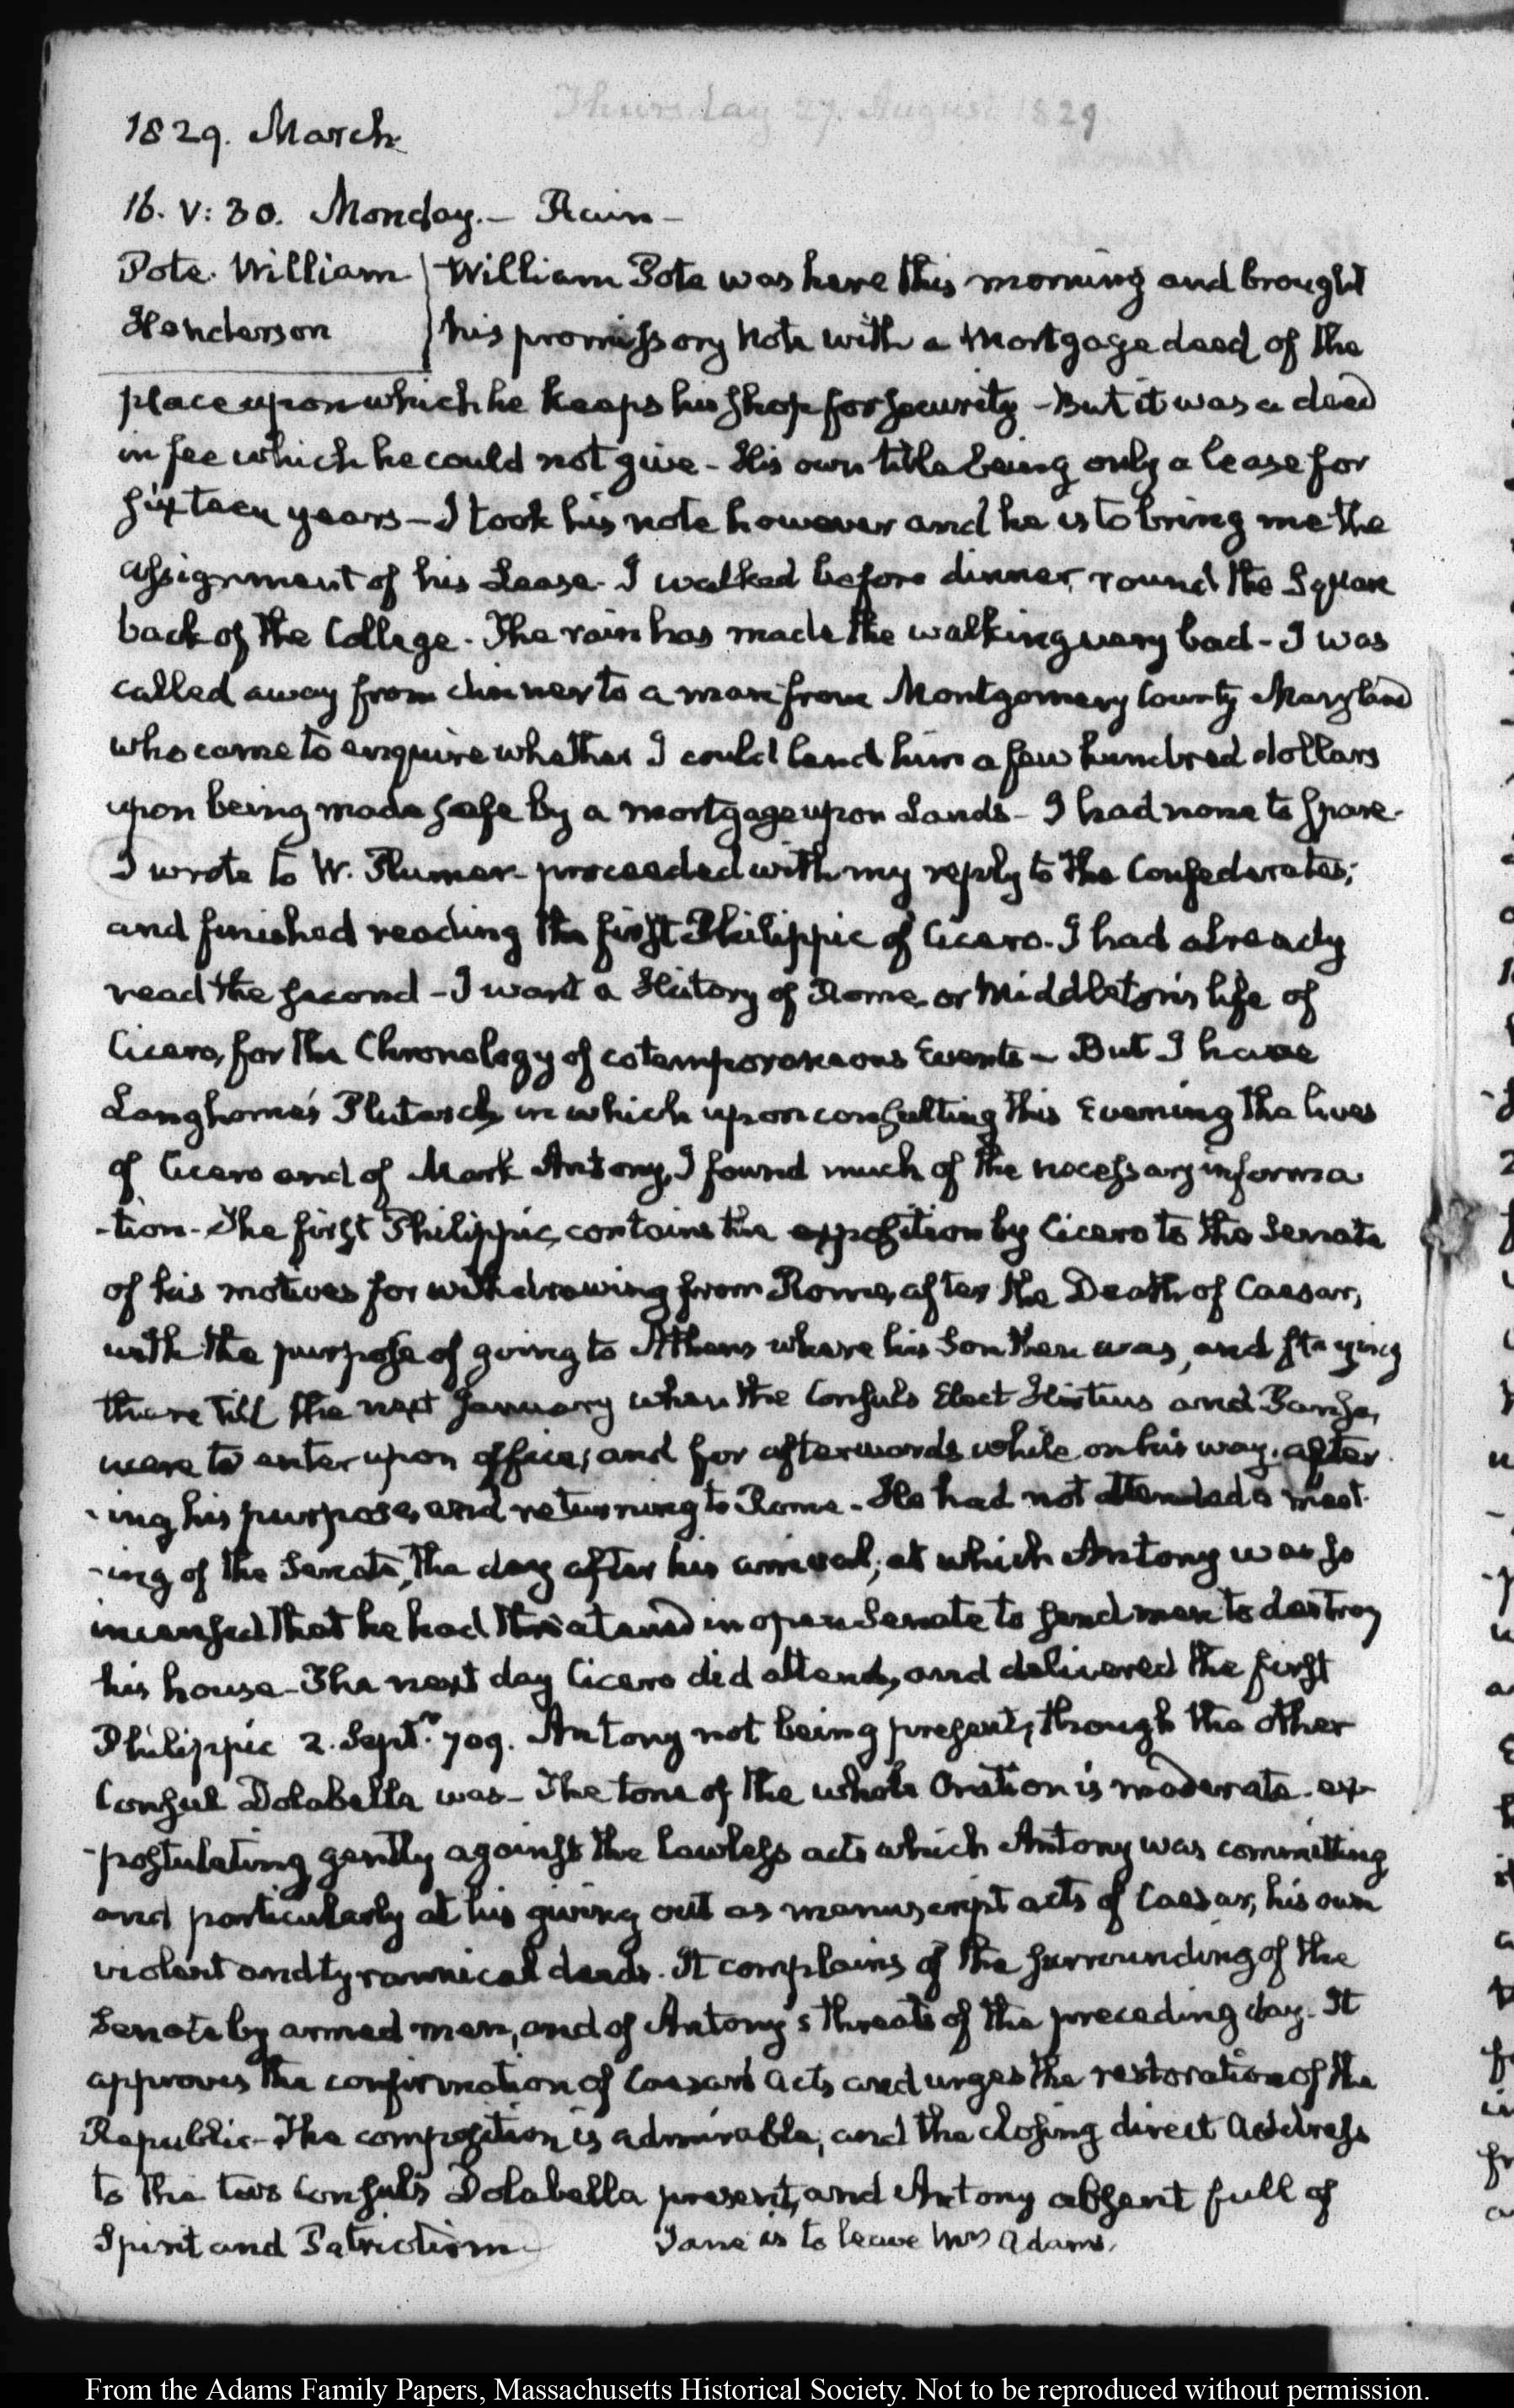 Thursday 27. August 1829.
1829. March
16. V: 30. Monday.– Rain–
Pote. William William Pote was here this morning and brought
Henderson his promissory Note with a Mortgage deed of the
place upon which he keeps his Shop for security – But it was a deed
in fee which he could not give – His own title being only a lease for
sixteen years – I took his note however and he is to bring me the
assignment of his Lease. I walked before dinner, round the Square
back of the College. The rain has made the walking very bad – I was
called away from dinner to a man from Montgomery County Maryland
who came to enquire whether I could lend him a few hundred dollars
upon being made safe by a mortgage upon Lands – I had none to spare.
I wrote to W. Plumer – proceeded with my reply to the Confederates;
and finished reading the first Philippic of Cicero. I had already
read the second – I want a History of Rome or Middleton's life of
Cicero, for the Chronology of cotemporaneous Events – But I have
Langhorne's Plutarch in which upon consulting this Evening the lives
of Cicero and of Mark Antony, I found much of the necessary informa
-tion – The first Philippic, contains the exposition by Cicero to the Senate
of his motives for withdrawing from Rome, after the Death of Caesar,
with the purpose of going to Athens where his Son then was, and staying
there till the next January when the Consuls Elect Hirtius and Pansa,
were to enter upon office; and for afterwards while on his way, alter
-ing his purpose, and returning to Rome – He had not attended a meet
-ing of the Senate, the day after his arrival; at which Antony was so
incensed that he had threatened in open Senate to send men to destroy
his house – The next day Cicero did attend, and delivered the first
Philippic 2. Septr. 709. Antony not being present, though the other
Consul Dolabella was – The tone of the whole Oration is moderate – ex
-postulating gently against the lawless acts which Antony was committing
and particularly at his giving out as manuscript acts of Caesar, his own
violent and tyrannical deeds. It complains of the surrounding of the
Senate by armed men, and of Antony's threats of the preceding day. It
approves the confirmation of Caesar's acts and urges the restoration of the
Republic – The composition is admirable, and the closing direct Address
to the two Consuls Dolabella present, and Antony absent full of
Spirit and Patriotism – Jane is to leave Mrs Adams.
From the Adams Family Papers, Massachusetts Historical Society. Not to be reproduced without permission.